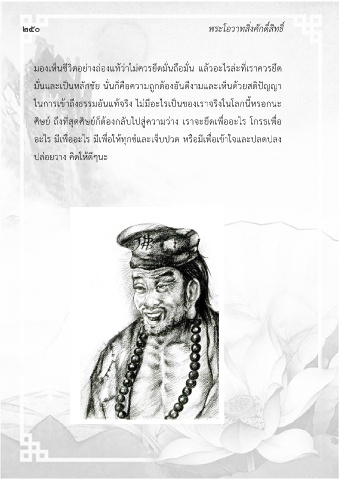 ๒๕๐
พระโอวาทสิ่งศักดิ์สิทธิ์
มองเห็นชีวิตอย่างถ่องแท้ว่าไม่ควรยึดมั่นถือมั่น แล้วอะไรล่ะที่เราควรยึด
มั่นและเป็นหลักชัย นั่นก็คือความถูกต้องอันดีงามและเห็นด้วยสติปัญญา
ในการเข้าถึงธรรมอันแท้จริง ไม่มีอะไรเป็นของเราจริงในโลกนี้หรอกนะ
ศิษย์ ถึงที่สุดศิษย์ก็ต้องกลับไปสู่ความว่าง เราจะยึดเพื่ออะไร โกรธเพื่อ
อะไร มีเพื่ออะไร มีเพื่อให้ทุกข์และเจ็บปวด หรือมีเพื่อเข้าใจและปลดปลง
ปล่อยวาง คิดให้ดีๆนะ
佛